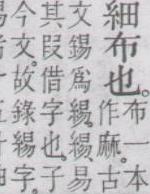 細布也。布一本
作麻。古
文錫爲緆。緆易
其叚借字也。子
今文。故錄緆字